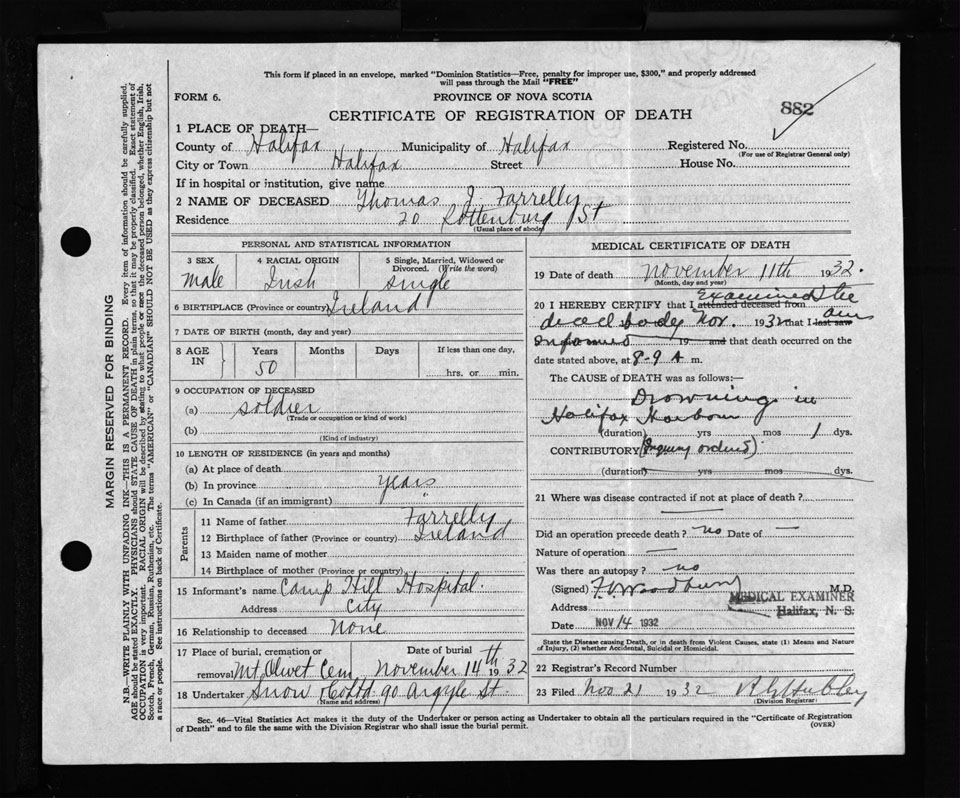 This form if placed in an envelope, marked "Dominion Statistics—Free, penalty for improper use, $300," and properly addressed
will pass through the Mail "FREE"
FORM 6.
PROVINCE OF NOVA SCOTIA
882
CERTIFICATE OF REGISTRATION OF DEATH
1 PLACE OF DEATH—
County of Halifax Municipality of Halifax Registered No.
(For use of Registrar General only)
City or Town Halifax Street House No.
If in hospital or institution, give name
2 NAME OF DECEASED Thomas J. Farrelly
Residence 20 Rottenburg St
(Usual place of abode)
PERSONAL AND STATISTICAL INFORMATION
3 SEX
male
4 RACIAL ORIGIN
Irish
5 Single, Married, Widowed or
Divorced. (Write the word)
single
6 BIRTHPLACE (Province or country) Ireland
7 DATE OF BIRTH (month, day and year)
8 AGE IN
Years Months Days If less than one day,
50 hrs. or min.
9 OCCUPATION OF DECEASED
(a) soldier
(Trade or occupation or kind of work)
(b)
(Kind of industry)
10 LENGTH OF RESIDENCE (in years and months)
(a) At place of death
(b) In province years
(c) In Canada (if an immigrant) "
Parents
11 Name of father Farrelly
12 Birthplace of father (Province or country) Ireland
13 Maiden name of mother
14 Birthplace of mother (Province or country)
15 Informant's name Camp Hill Hospital.
Address City
16 Relationship to deceased None
17 Place of burial, cremation or Date of burial
removal Mt. Olivet Cem. November 14th 1932
18 Undertaker Snow & Co Ltd. 90 Argyle St.
(Name and address)
MEDICAL CERTIFICATE OF DEATH
19 Date of death November 11th 1932.
(Month, day and year)
20 I HEREBY CERTIFY that I attended deceased from Examined the
dead body Nov. 1932 that I last saw am
informed 19 and that death occurred on the
date stated above, at 8-9 A m.
The CAUSE of DEATH was as follows:—
Drowning in
Halifax Harbour
(duration) yrs mos 1 dys.
CONTRIBUTORY (Inquiry ordered)
(duration) yrs mos dys.
21 Where was disease contracted if not at place of death?
Did an operation precede death? no Date of —
Nature of operation —
Was there an autopsy? no
(Signed) Woodbury M.D.
MEDICAL EXAMINER
Address Halifax, N. S.
Date NOV 14 1932
State the Disease causing Death, or in death from Violent Causes, state (1) Means and Nature
of Injury, (2) whether Accidental, Suicidal or Homicidal.
22 Registrar's Record Number
23 Filed Nov 21 1932 Hubley
(Division Registrar)
Sec. 46—Vital Statistics Act makes it the duty of the Undertaker or person acting as Undertaker to obtain all the particulars required in the "Certificate of Registration
of Death" and to file the same with the Division Registrar who shall issue the burial permit.
(OVER)
MARGIN RESERVED FOR BINDING
N.B.—WRITE PLAINLY WITH UNFADING INK—THIS IS A PERMANENT RECORD. Every item of information should be carefully supplied.
AGE should be stated EXACTLY. PHYSICIANS should STATE CAUSE OF DEATH in plain terms, so that it may be properly classified. Exact statement of
OCCUPATION is very important. RACIAL ORIGIN will be described by stating to what people or race the deceased person belonged, whether English, Irish,
Scotch, French, German, Russian, Ruthenian, etc. The terms "AMERICAN" or "CANADIAN" SHOULD NOT BE USED as they express citizenship but not
a race or people. See instructions on back of Certificate.